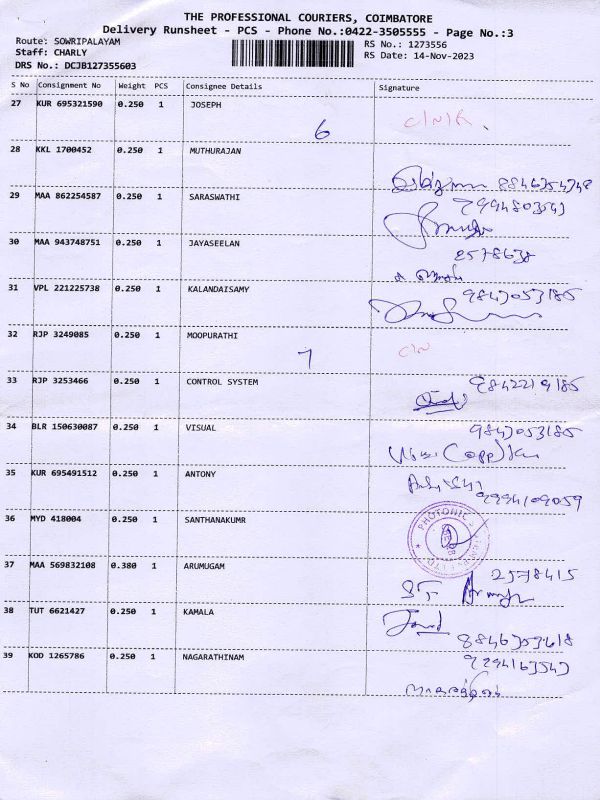 THE PROFESSIONAL COURIERS, COIMBATORE
Delivery Runsheet - PCS - Phone No.:0422-3505555 - Page No.:3
Route: SOWRIPALAYAM
Staff: CHARLY
DRS No.: DCJB127355603
RS No.: 1273556
RS Date: 14-Nov-2023
S No Consignment No Weight PCS Consignee Details Signature
27 KUR 695321590 0.250 1 JOSEPH
6
28 KKL 1700452 0.250 1 MUTHURAJAN
29 MAA 862254587 0.250 1 SARASWATHI
30 MAA 943748751 0.250 1 JAYASEELAN
2578638
31 VPL 221225738 0.250 1 KALANDAISAMY 9843053185
32 RJP 3249085 0.250 1 MOOPURATHI
7
33 RJP 3253466 0.250 1 CONTROL SYSTEM 9842219185
34 BLR 150630087 0.250 1 VISUAL 9843053185
35 KUR 695491512 0.250 1 ANTONY
9994109059
36 MYD 418004 0.250 1 SANTHANAKUMR PHOTONIC
37 MAA 569832108 0.380 1 ARUMUGAM 2578415
38 TUT 6621427 0.250 1 KAMALA
39 KOD 1265786 0.250 1 NAGARATHINAM